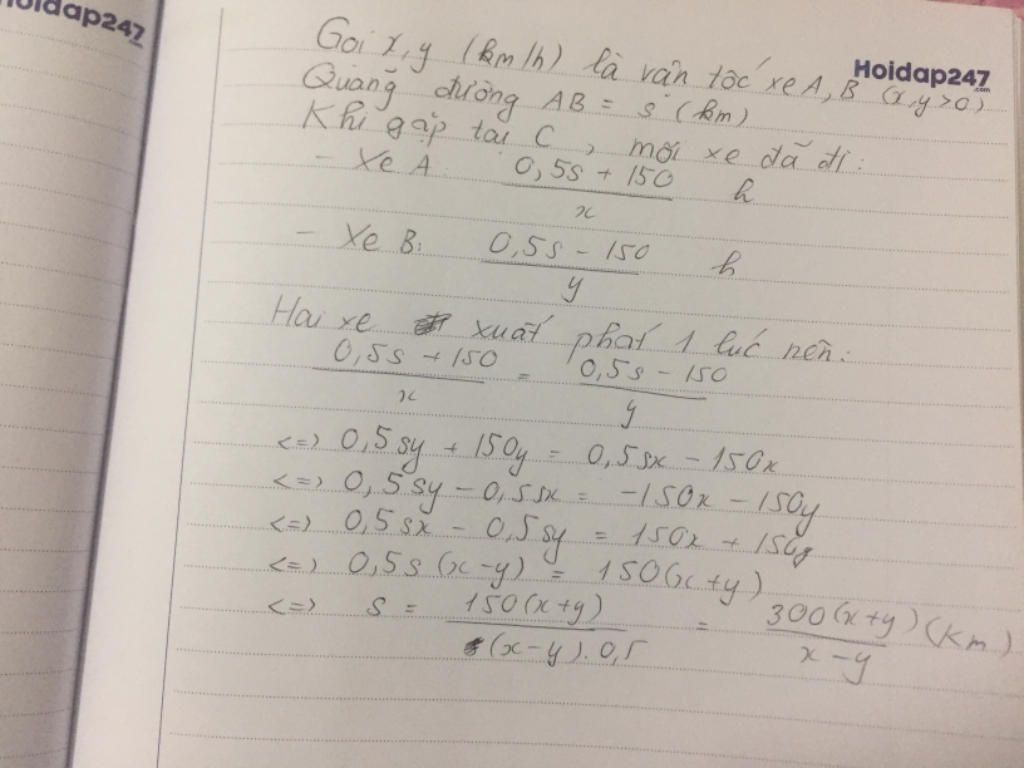 Hoidap247
Hoidap247
.com
Gọi x, y (km/h) là vận tốc xe A, B (x, y > 0)
Quãng đường AB = s (km)
Khi gặp tại C, mỗi xe đã đi:
- Xe A: (0,5s + 150)/x h
- Xe B: (0,5s - 150)/y h
Hai xe xuất phát 1 lúc nên:
(0,5s + 150)/x = (0,5s - 150)/y
<=> 0,5sy + 150y = 0,5sx - 150x
<=> 0,5sy - 0,5sx = -150x - 150y
<=> 0,5sx - 0,5sy = 150x + 150y
<=> 0,5s (x-y) = 150(x+y)
<=> s = 150(x+y)/((x-y).0,5) = 300(x+y)/(x-y) (km)